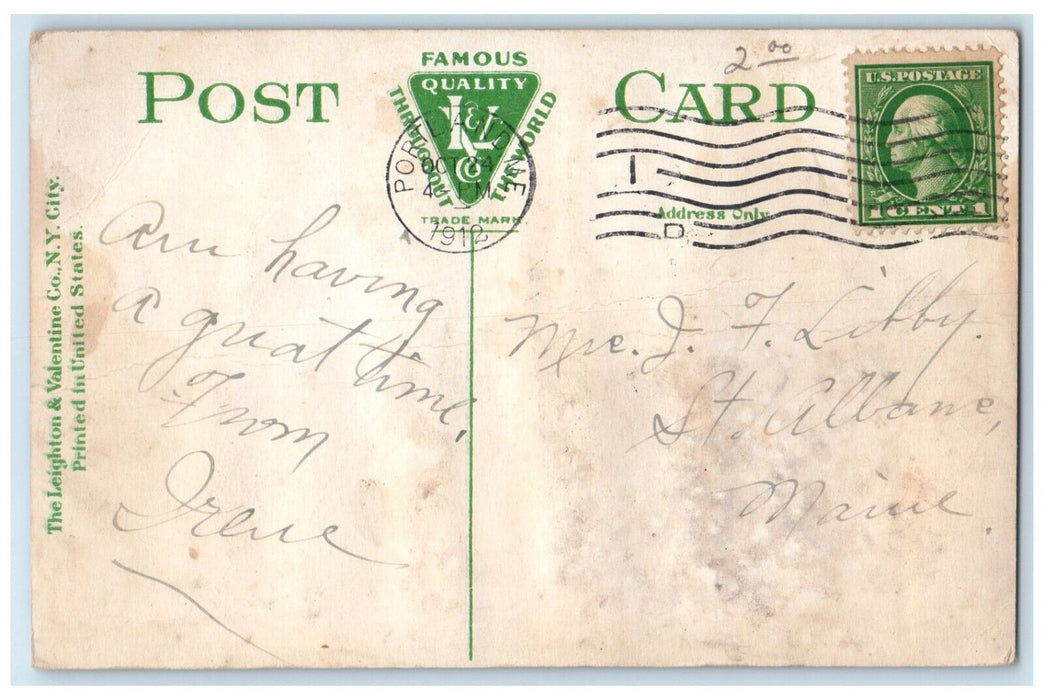 POST CARD
2 00
FAMOUS
QUALITY
THROUGHOUT THE WORLD
L&V
Co
TRADE MARK
PORTLAND, MAINE
OCT 24
4 - PM
1912
1
D
U.S. POSTAGE
1 CENT 1
Address Only.
The Leighton & Valentine Co., N.Y. City.
Printed in United States.
Am having
a great time.
From
Irene
Mrs. J. F. Libby.
St. Albans,
Maine.